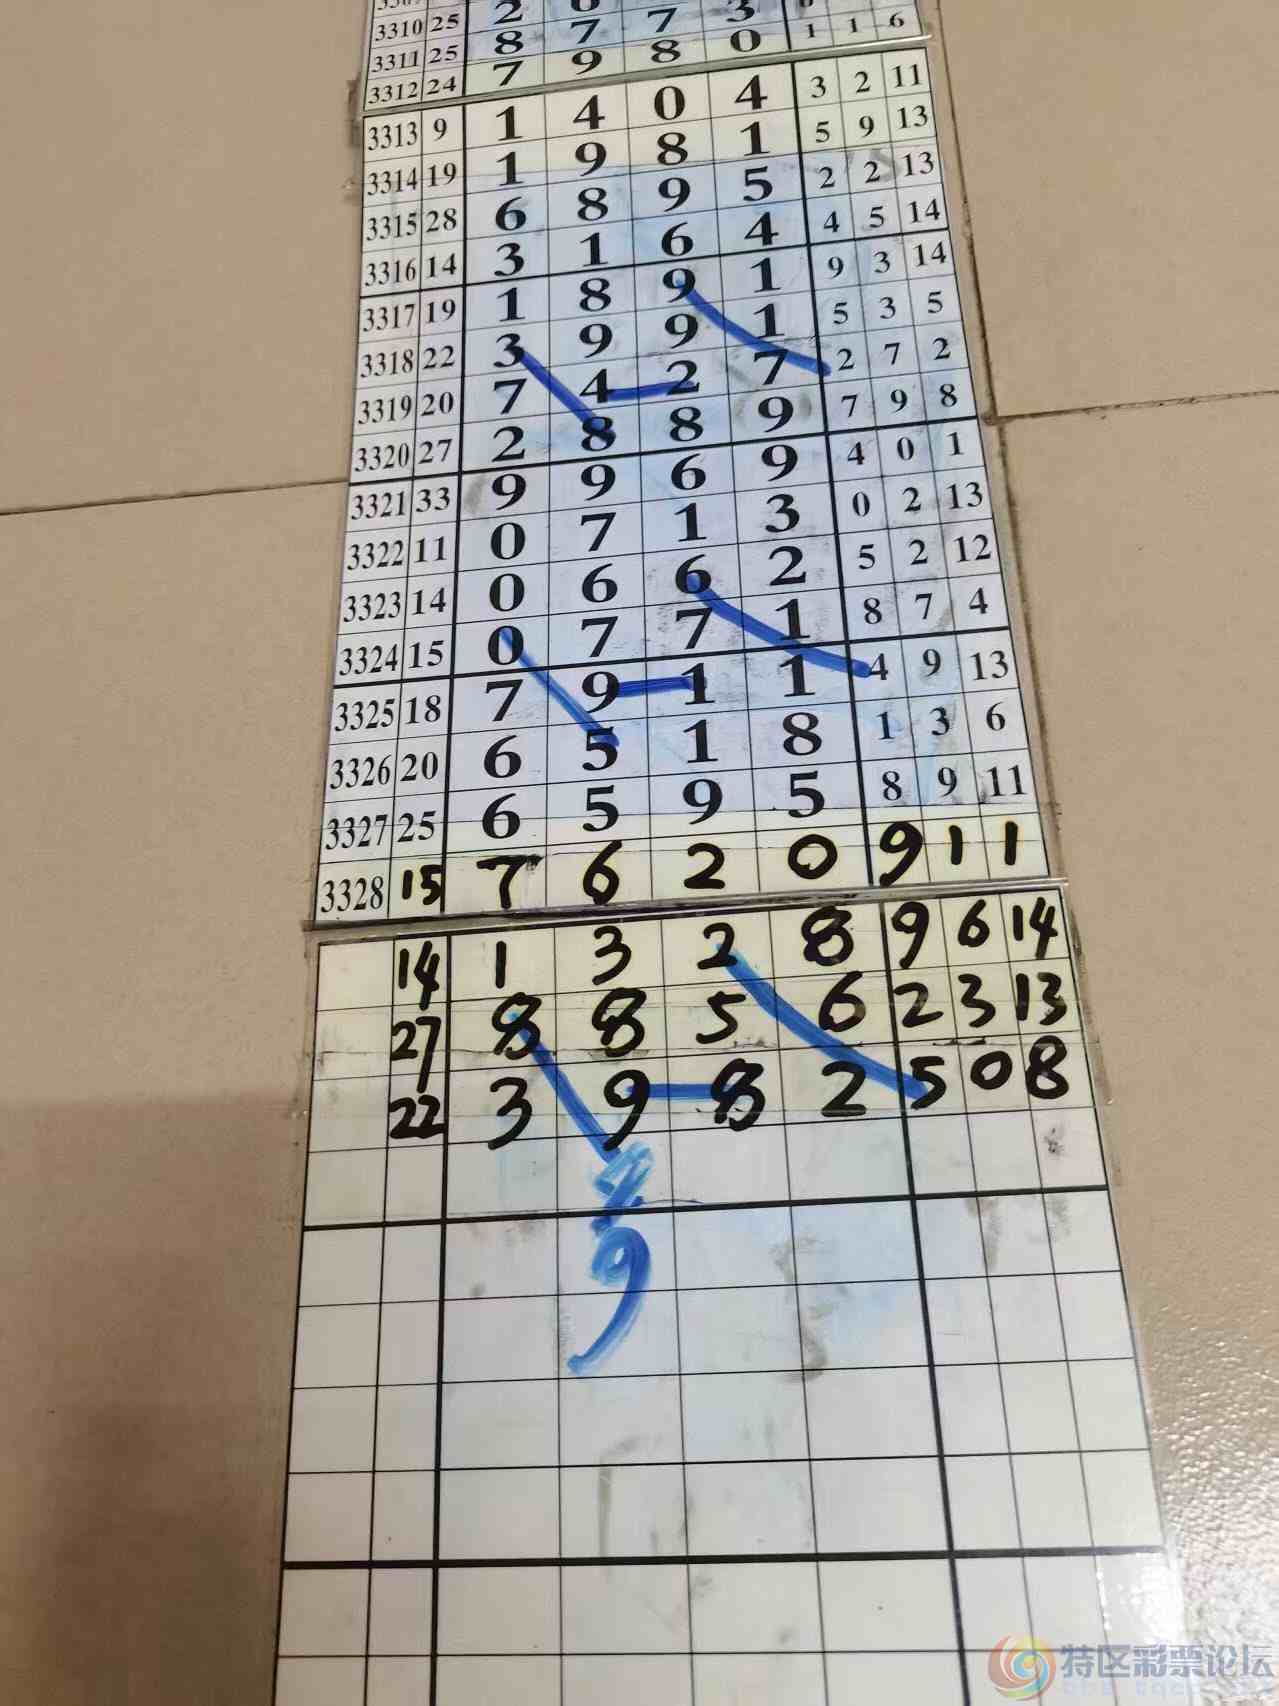 3310 25 2 7 7 3
3311 25 8 7 7 0 1 1 6
3312 24 7 9 8 0
3313 9 1 4 0 4 3 2 11
3314 19 1 9 8 1 5 9 13
3315 28 6 8 9 5 2 2 13
3316 14 3 1 6 4 4 5 14
3317 19 1 8 9 1 9 3 14
3318 22 3 9 9 1 5 3 5
3319 20 7 4 2 7 2 7 2
3320 27 2 8 8 9 7 9 8
3321 33 9 9 6 9 4 0 1
3322 11 0 7 1 3 0 2 13
3323 14 0 6 6 2 5 2 12
3324 15 0 7 7 1 8 7 4
3325 18 7 9 1 1 4 9 13
3326 20 6 5 1 8 1 3 6
3327 25 6 5 9 5 8 9 11
3328 15 7 6 2 0 9 1 1
14 1 3 2 8 9 6 14
27 8 8 5 6 2 3 13
22 3 9 8 2 5 0 8
9
特区彩票论坛